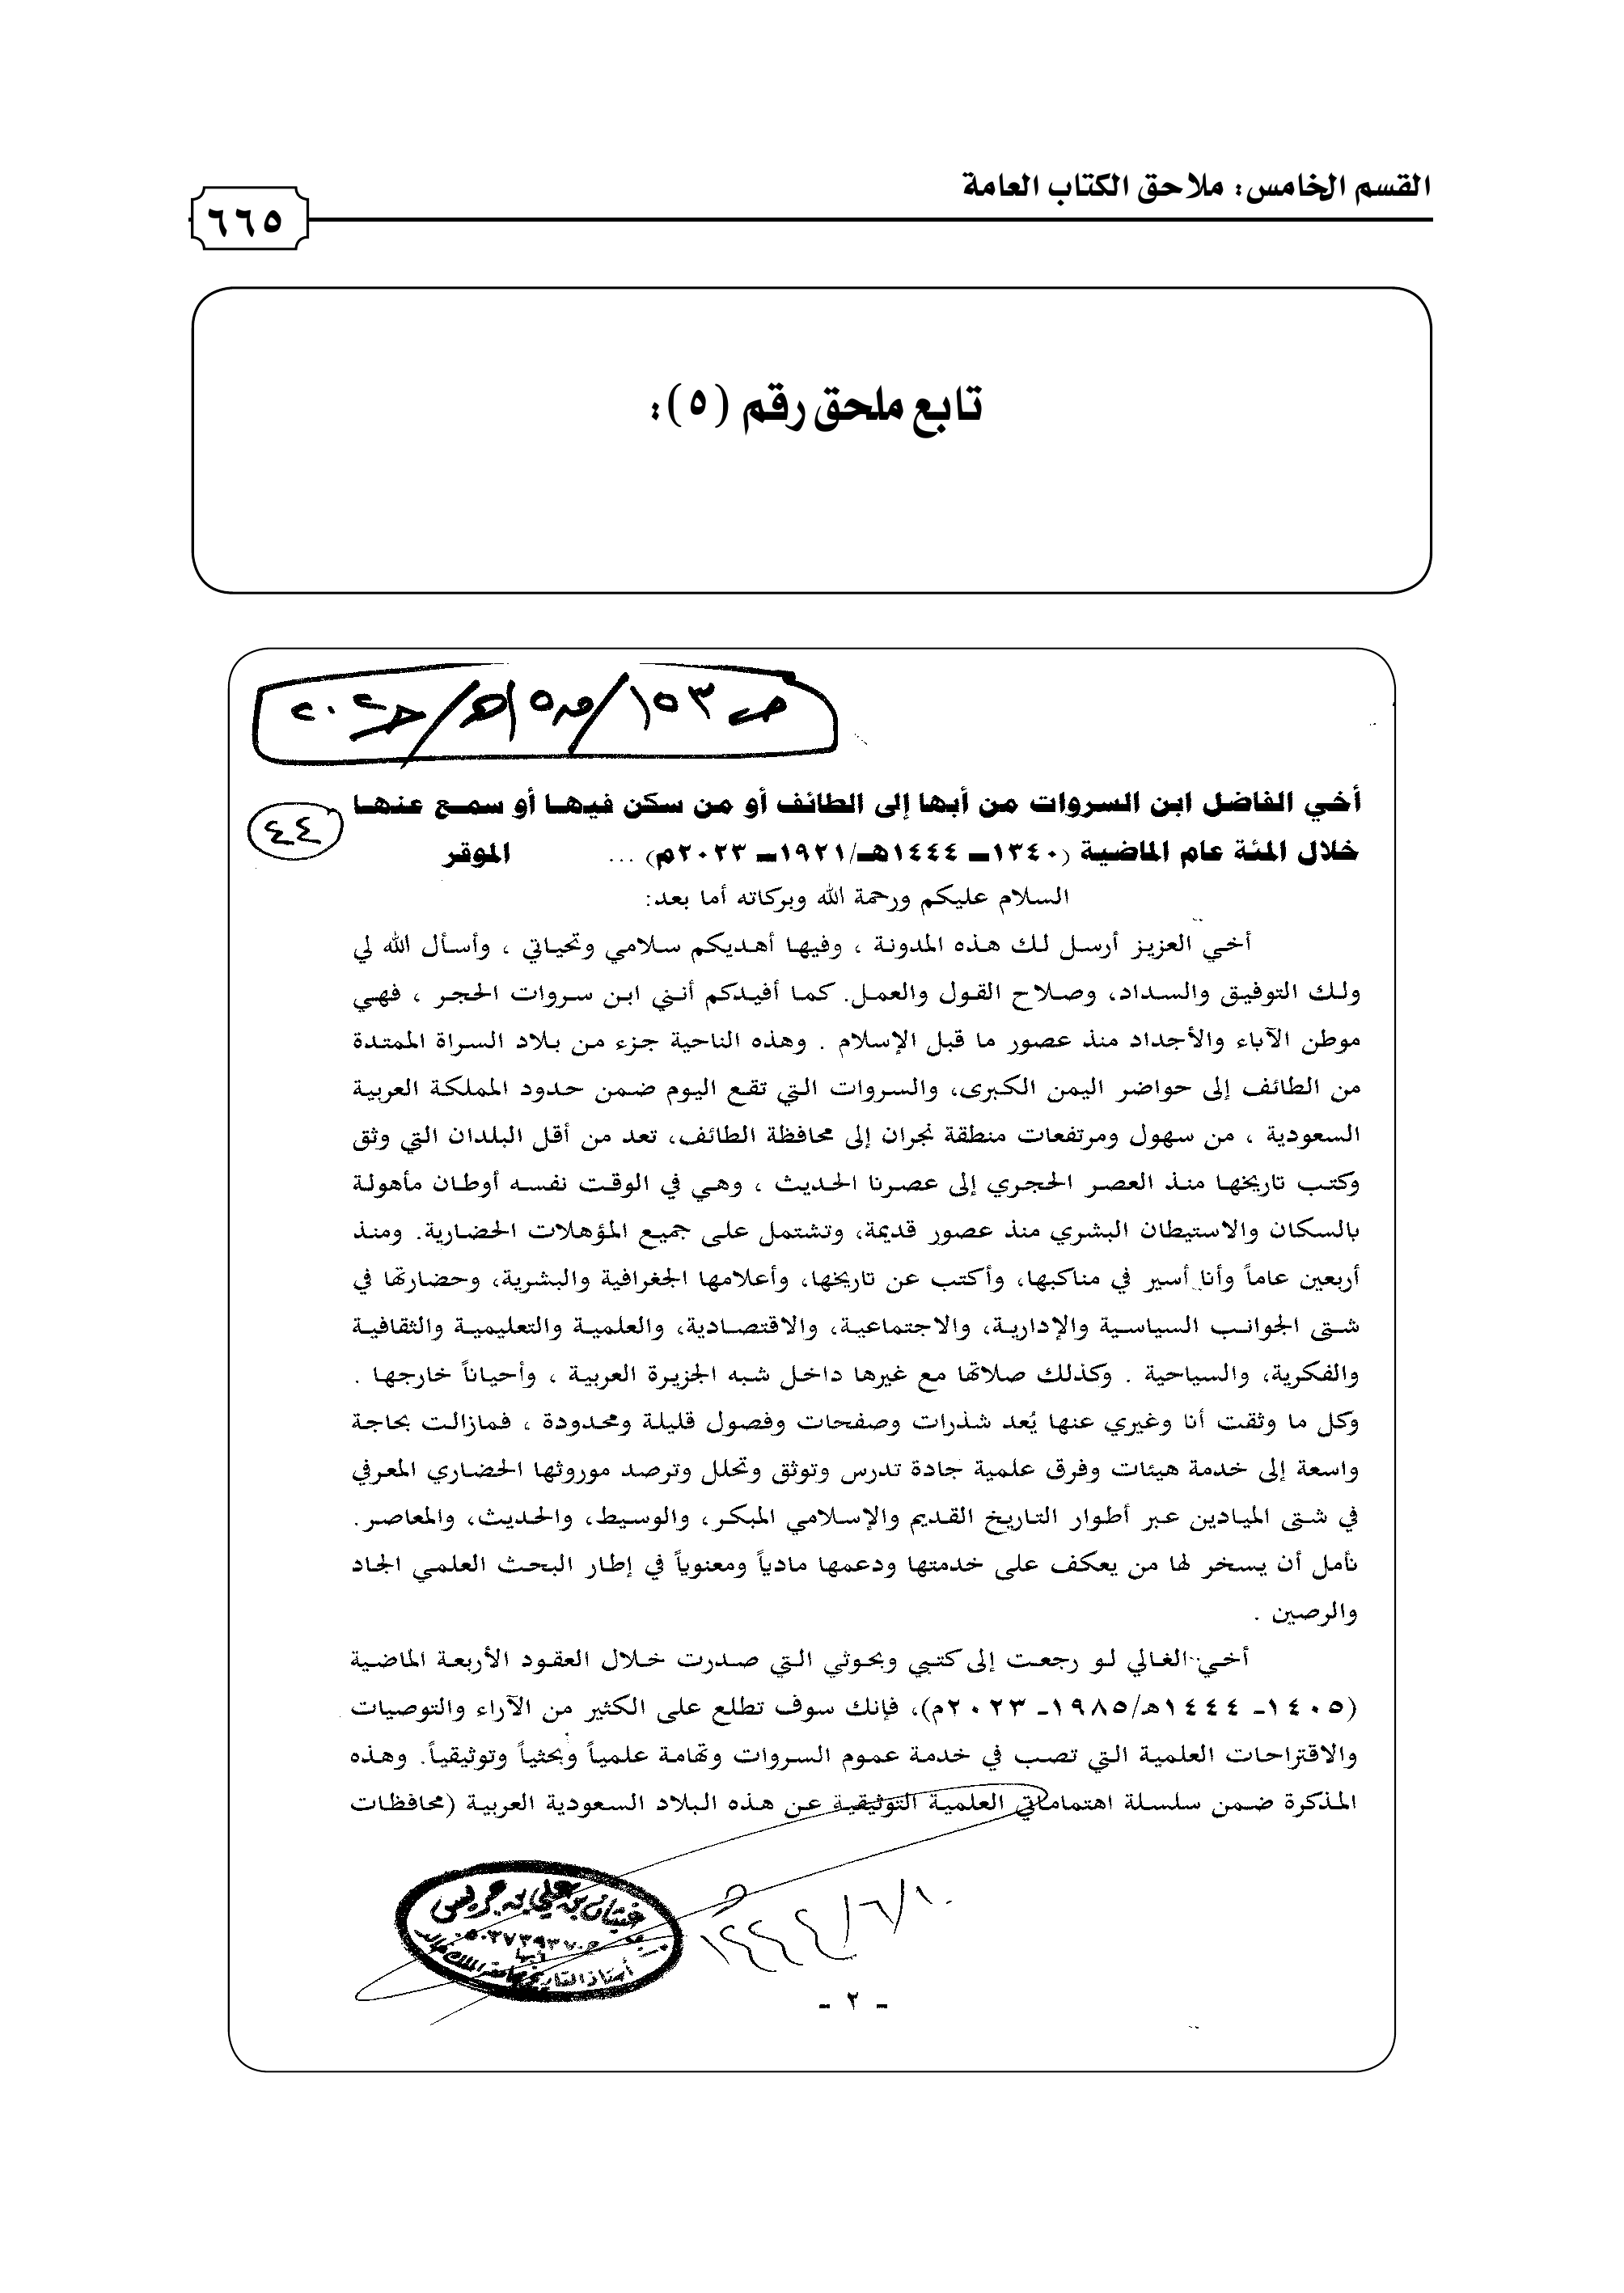 القسم الخامس: ملاحق الكتاب العامة
٦٦٥
تابع ملحق رقم (٥):
أخي الفاضل ابن السروات من أبها إلى الطائف أو من سكن فيها أو سمع عنها
٤٤
خلال المئة عام الماضية (١٣٤٠ــ ١٤٤٤هـ/١٩٢١ــ ٢٠٢٣م) ... الموقر
السلام عليكم ورحمة الله وبركاته أما بعد:
أخي العزيز أرسل لك هذه المدونة ، وفيها أهديكم سلامي وتحياتي ، وأسأل الله لي
ولك التوفيق والسداد، وصلاح القول والعمل. كما أفيدكم أنني ابن سروات الحجر ، فهي
موطن الآباء والأجداد منذ عصور ما قبل الإسلام . وهذه الناحية جزء من بلاد السراة الممتدة
من الطائف إلى حواضر اليمن الكبرى، والسروات التي تقع اليوم ضمن حدود المملكة العربية
السعودية ، من سهول ومرتفعات منطقة نجران إلى محافظة الطائف، تعد من أقل البلدان التي وثق
وكتب تاريخها منذ العصر الحجري إلى عصرنا الحديث ، وهي في الوقت نفسه أوطان مأهولة
بالسكان والاستيطان البشري منذ عصور قديمة، وتشتمل على جميع المؤهلات الحضارية. ومنذ
أربعين عاماً وأنا أسير في مناكبها، وأكتب عن تاريخها، وأعلامها الجغرافية والبشرية، وحضارتها في
شتى الجوانب السياسية والإدارية، والاجتماعية، والاقتصادية، والعلمية والتعليمية والثقافية
والفكرية، والسياحية . وكذلك صلاتها مع غيرها داخل شبه الجزيرة العربية ، وأحياناً خارجها .
وكل ما وثقت أنا وغيري عنها يُعد شذرات وصفحات وفصول قليلة ومحدودة ، فمازالت بحاجة
واسعة إلى خدمة هيئات وفرق علمية جادة تدرس وتوثق وتحلل وترصد موروثها الحضاري المعرفي
في شتى الميادين عبر أطوار التاريخ القديم والإسلامي المبكر، والوسيط، والحديث، والمعاصر.
نأمل أن يسخر لها من يعكف على خدمتها ودعمها مادياً ومعنوياً في إطار البحث العلمي الجاد
والرصين .
أخي الغالي لو رجعت إلى كتبي وبحوثي التي صدرت خلال العقود الأربعة الماضية
(١٤٠٥ـ ١٤٤٤هـ/١٩٨٥ـ ٢٠٢٣م)، فإنك سوف تطلع على الكثير من الآراء والتوصيات
والاقتراحات العلمية التي تصب في خدمة عموم السروات وتهامة علمياً وبحثياً وتوثيقياً. وهذه
المذكرة ضمن سلسلة اهتماماتي العلمية التوثيقية عن هذه البلاد السعودية العربية (محافظات
١٤٤٤/٦/١٠هـ
غيثان بن علي بن جريس
أستاذ التاريخ بجامعة الملك خالد
- ٢ -